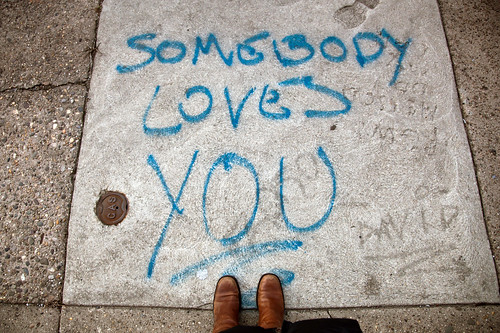 SOMEBODY
LOVES
YOU
DAVID